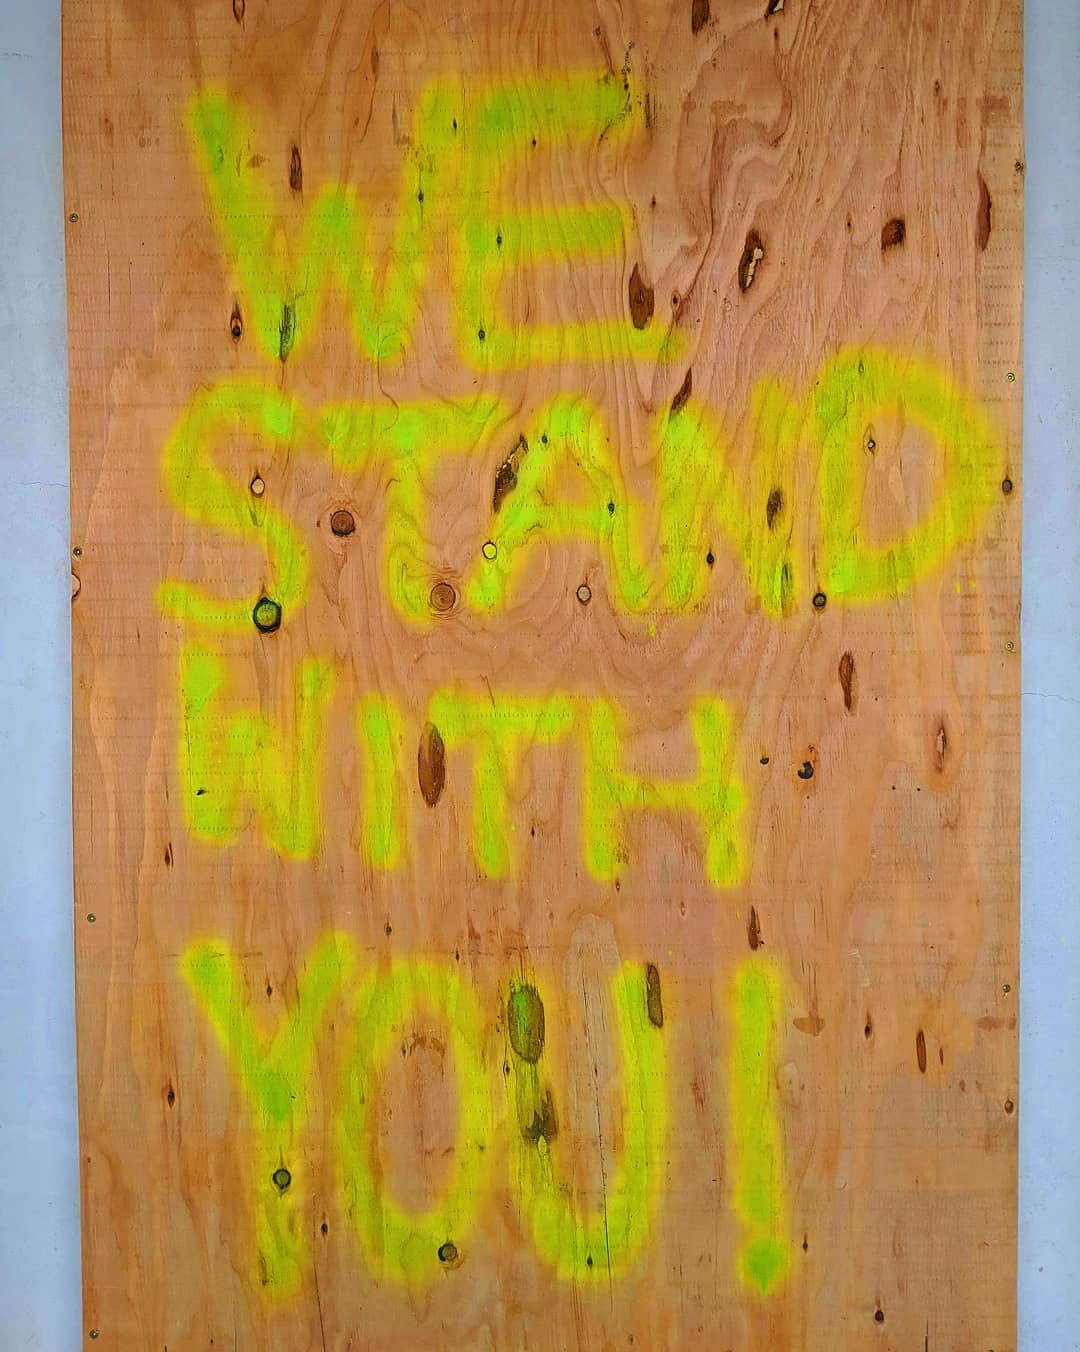 WE
STAND
WITH
YOU!